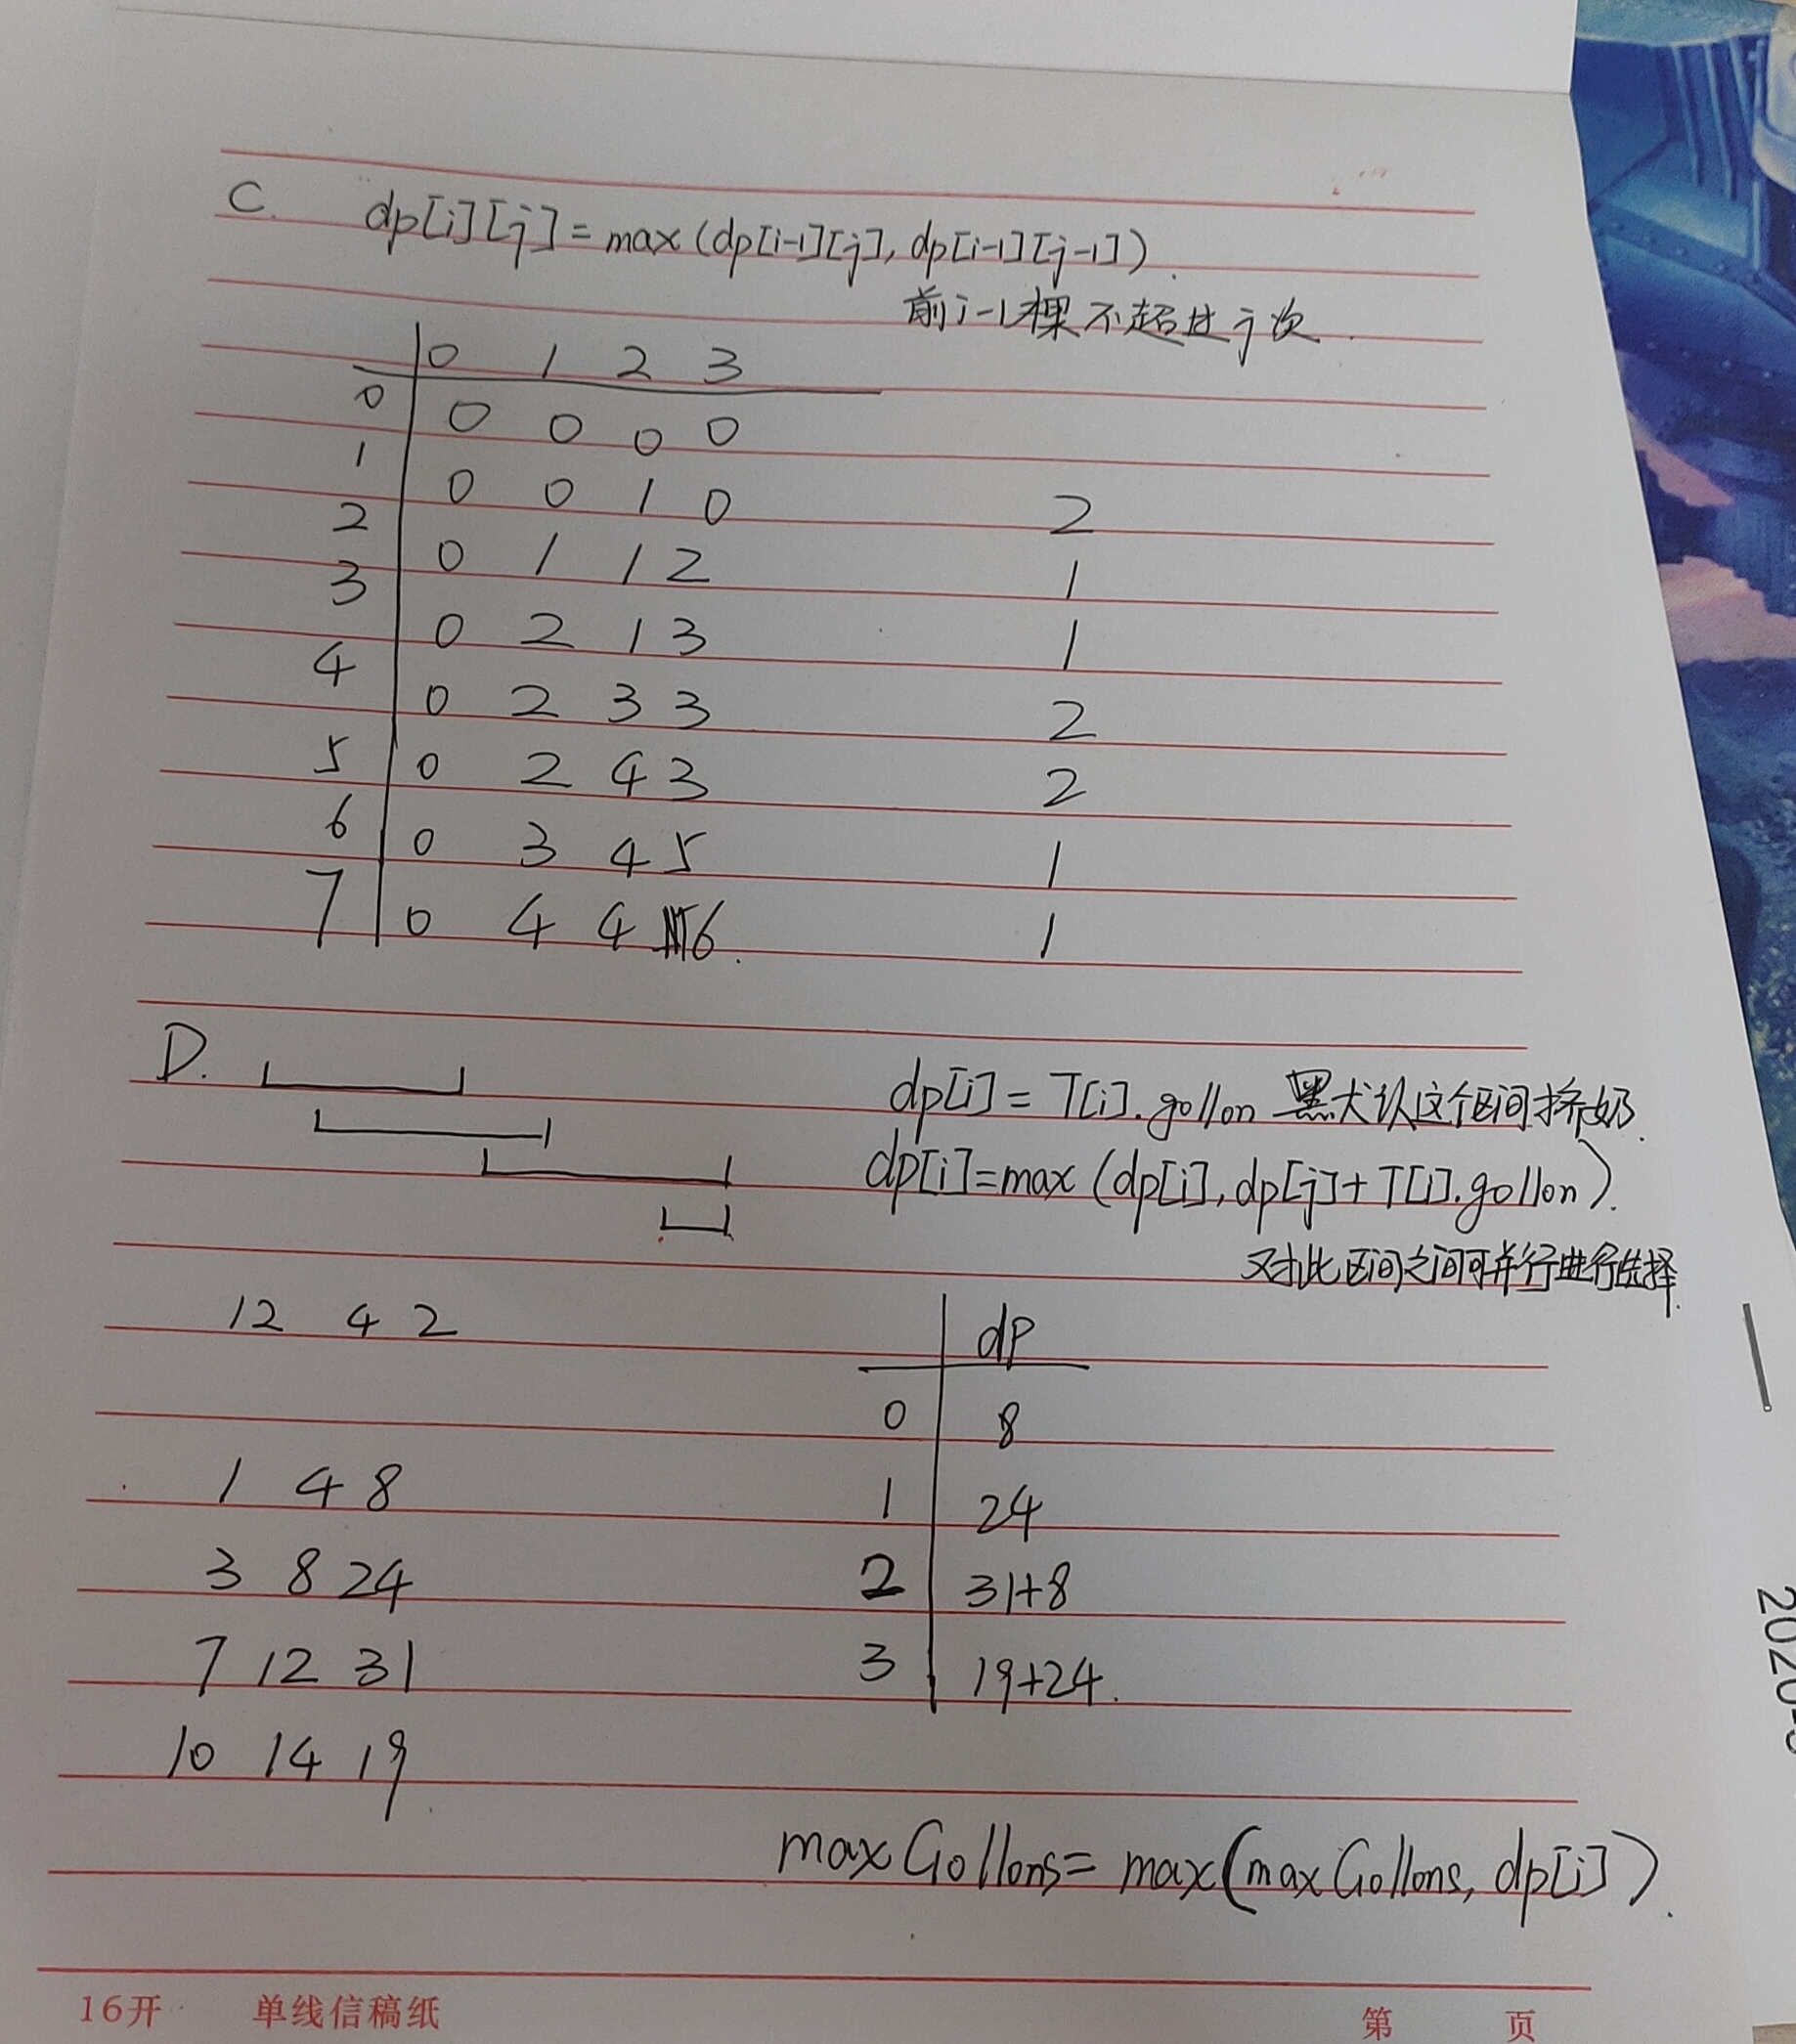 C. dp[i][j]=max(dp[i-1][j], dp[i-1][j-1]).
前i-1棵不超过j次.
0 1 2 3
0 0 0 0 0
1 0 0 1 0 2
2 0 1 1 2 1
3 0 2 1 3 1
4 0 2 3 3 2
5 0 2 4 3 2
6 0 3 4 5 1
7 0 4 4 6. 1
D.
dp[i] = T[i].gollon 默认这个区间挤奶.
dp[i]=max(dp[i], dp[j]+T[i].gollon).
对比区间之间可并行进行选择.
12 4 2
1 4 8
3 8 24
7 12 31
10 14 19
dp
0 8
1 24
2 31+8
3 19+24.
maxGollons= max(maxGollons, dp[i]).
16开 单线信稿纸 第 页